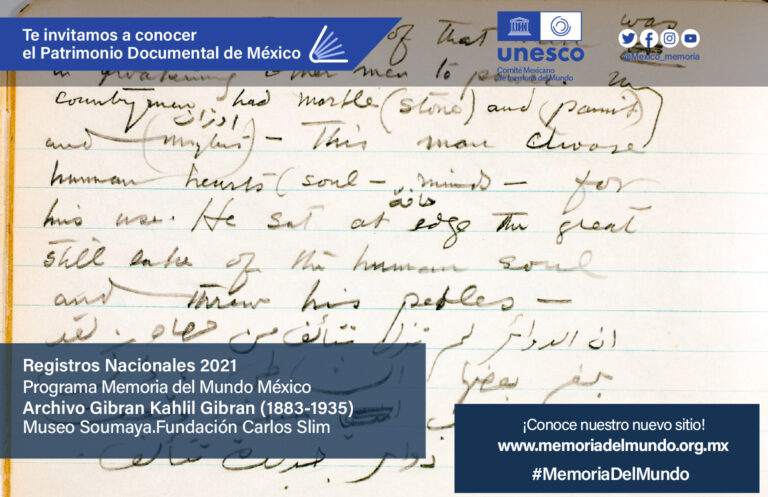 Te invitamos a conocer
el Patrimonio Documental de México
unesco
Comité Mexicano
de memoria del Mundo
@Mexico_memoria
of that was
other men to
countrymen had marble (stone) and (paint)
اوزان
and - This man choose
human hearts (soul - minds - for
حافة
his use. He sat at edge the great
still lake of the human soul
and threw his pebles -
ان الدوائر لم تزل تتألف من
بعضها
دوائر جديدة تتألف.
Registros Nacionales 2021
Programa Memoria del Mundo México
Archivo Gibran Kahlil Gibran (1883-1935)
Museo Soumaya.Fundación Carlos Slim
¡Conoce nuestro nuevo sitio!
www.memoriadelmundo.org.mx
#MemoriaDelMundo